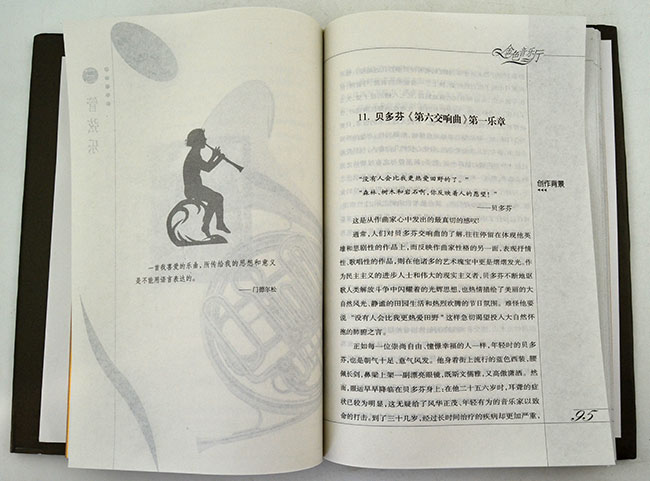 管弦乐
一首我喜爱的乐曲，所传给我的思想和意义
是不能用语言表达的。
——门德尔松
金色音乐厅
11. 贝多芬《第六交响曲》第一乐章
创作背景
“没有人会比我更热爱田野的了。”
“森林、树木和岩石啊，你反映着人的愿望！”
——贝多芬
这是从作曲家心中发出的最真切的感叹！
通常，人们对贝多芬交响曲的了解，往往停留在体现他英
雄和悲剧性的作品上，而反映作曲家性格的另一面，表现抒情
性、歌唱性的作品，则在他诸多的艺术瑰宝中更是熠熠发光。作
为民主主义的进步人士和伟大的现实主义者，贝多芬不断地讴
歌人类解放斗争中闪耀着的光辉思想，也热情描绘了美丽的大
自然风光、静谧的田园生活和热烈欢腾的节日氛围。难怪他要
说“没有人会比我更热爱田野”这样急切渴望投入大自然怀
抱的肺腑之言。
正如每一位崇尚自由、憧憬幸福的人一样，年轻时的贝多
芬，也是朝气十足、意气风发。他身着街上流行的蓝色西装，腰
佩长剑，鼻梁上架一副漂亮眼镜，既斯文儒雅，又高傲潇洒。然
而，噩运早早降临在贝多芬身上：在他二十五六岁时，耳聋的症
状已较为明显，这无疑给了风华正茂、年轻有为的音乐家以致
命的打击，到了三十几岁，经过长时间治疗的疾病却更加严重，
95